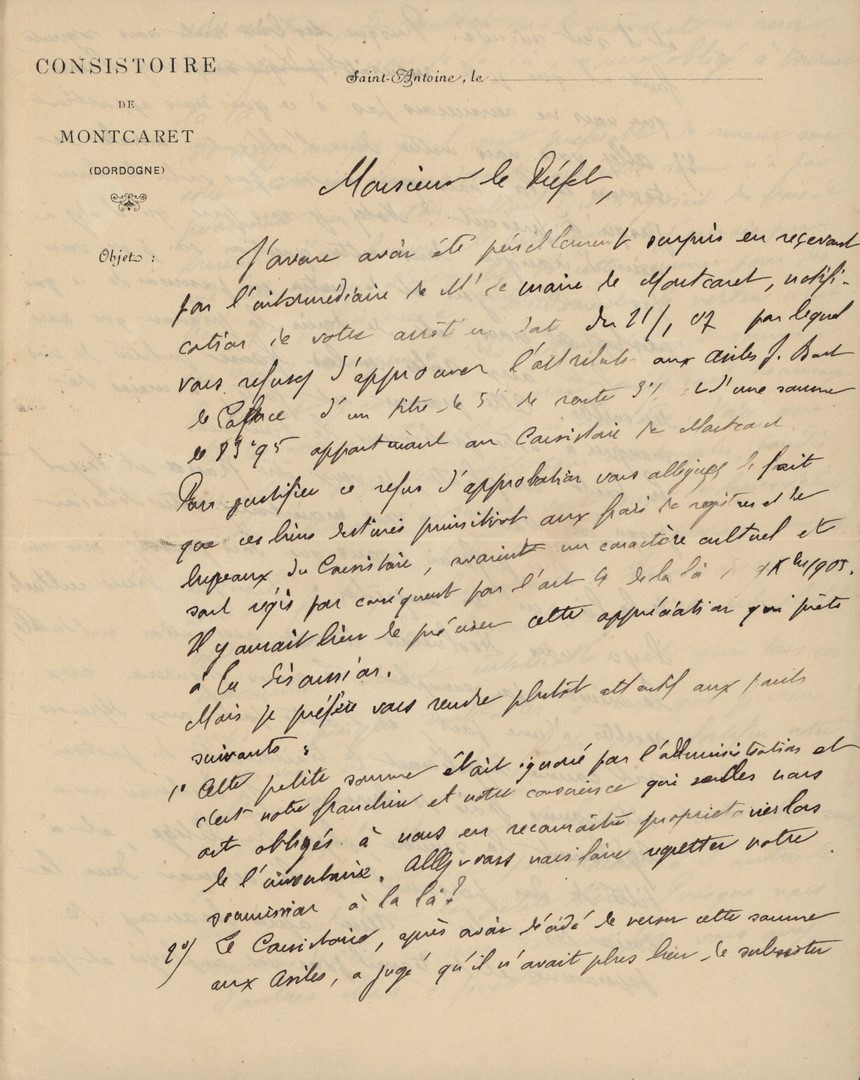 CONSISTOIRE
DE
MONTCARET
(DORDOGNE)
Saint-Antoine, le
Objet :
Monsieur le Préfet,
J'avoue avoir été péniblement surpris en recevant
par l'intermédiaire de Mr le maire de Montcaret, notifi-
cation de votre arrêté en dat du 21/1 07 par lequel
vous refusez d'approuver l'attribut aux asiles J. Bost
de Laforce d'un titre de 5 de rente 3% et d'une somme
de 83 95 appartenant au Consistoire de Montcaret.
Pour justifier ce refus d'approbation vous alléguez le fait
que ces biens destinés primitivt aux frais de registres et de
bureaux du Consistoire, avaient un caractère cultuel et
sont régis par conséquent par l'art de la loi Xbre 1905.
Il y aurait lieu de préciser cette appréciation qui prête
à la discussion.
Mais je préfère vous rendre plutôt attentif aux points
suivants :
1° Cette petite somme était ignorée par l'administration et
c'est notre franchise et notre conscience qui seules nous
ont obligés à nous en reconnaître propriétaires lors
de l'inventaire. Allez vous nous faire regretter notre
soumission à la loi ?
2°) Le Consistoire, après avoir décidé de verser cette somme
aux Asiles, a jugé qu'il n'avait plus lieu de subsister